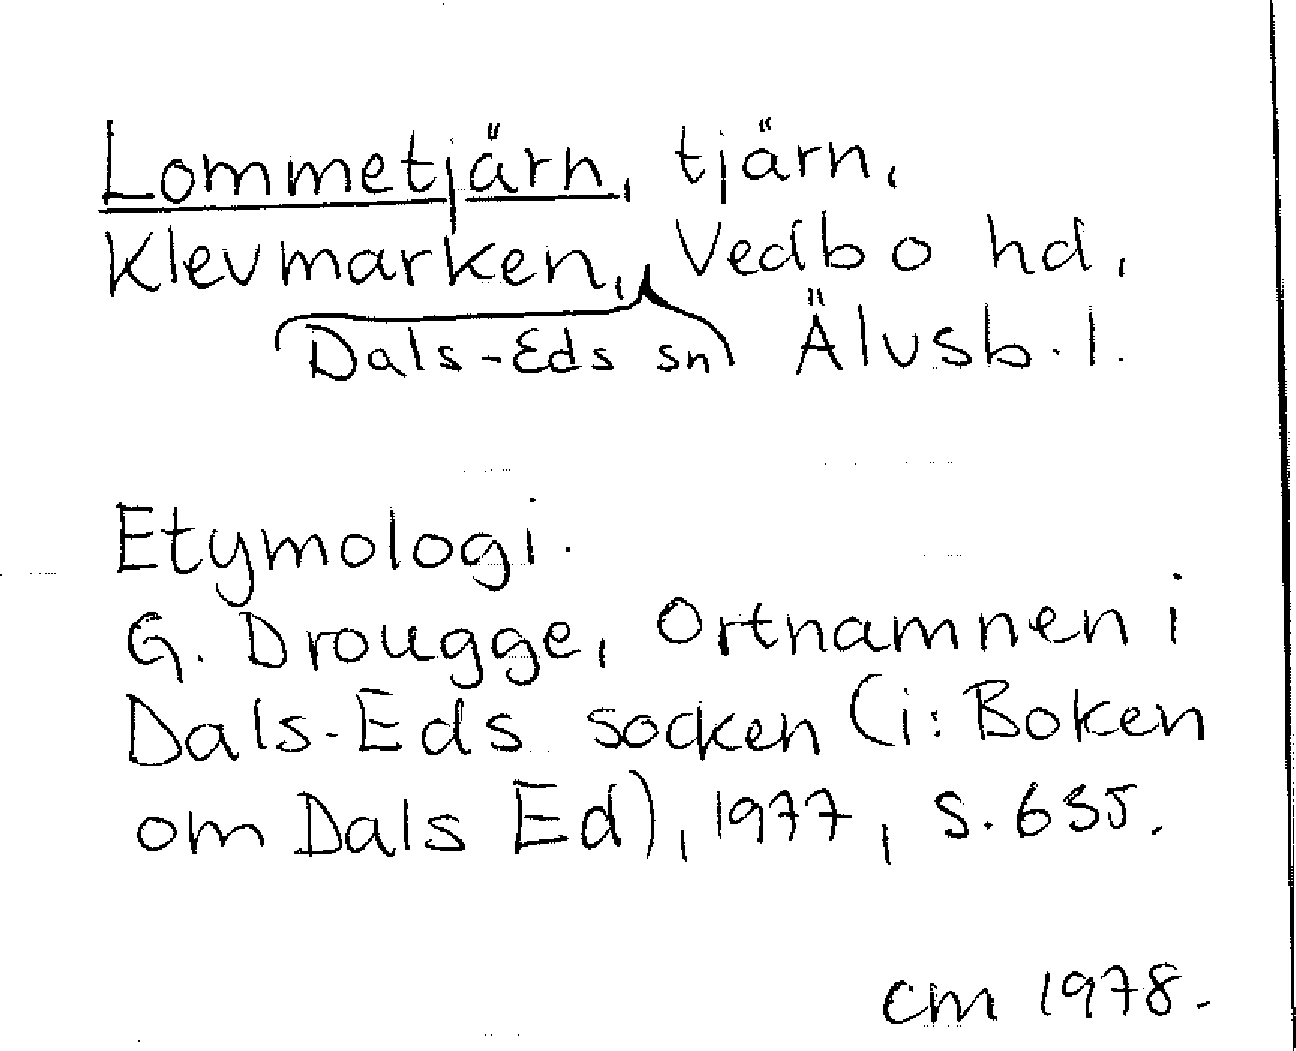 Lommetjärn, tjärn,
Klevmarken, Vedbo hd,
Dals-Eds sn Älvsb. l.
Etymologi.
G. Drougge, Ortnamnen i
Dals-Eds socken (i: Boken
om Dals Ed), 1977, s. 635.
cm 1978.